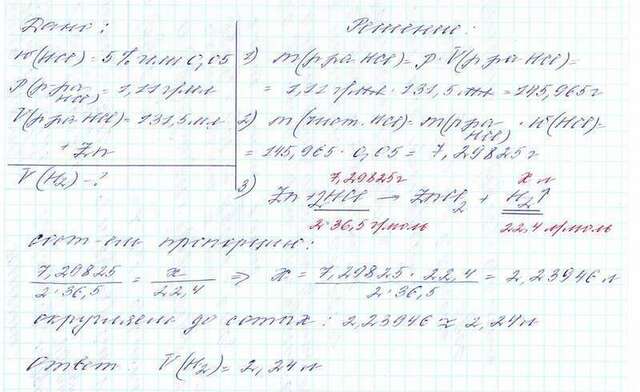 Дано:
w(HCl) = 5% или 0,05
ρ(р-ра HCl) = 1,11 г/мл
V(р-ра HCl) = 131,5 мл
+ Zn
V(H₂) - ?
Решение:
1) m(р-ра HCl) = ρ · V(р-ра HCl) =
= 1,11 г/мл · 131,5 мл = 145,965 г
2) m(чист. HCl) = m(р-ра HCl) · w(HCl) =
= 145,965 · 0,05 = 7,29825 г
7,29825 г x л
3) Zn + 2HCl → ZnCl₂ + H₂↑
2·36,5 г/моль 22,4 л/моль
сост-ем пропорцию:
7,29825 / 2·36,5 = x / 22,4 ⇒ x = 7,29825 · 22,4 / 2·36,5 = 2,23946 л
округляем до сотых: 2,23946 ≈ 2,24 л
Ответ: V(H₂) = 2,24 л